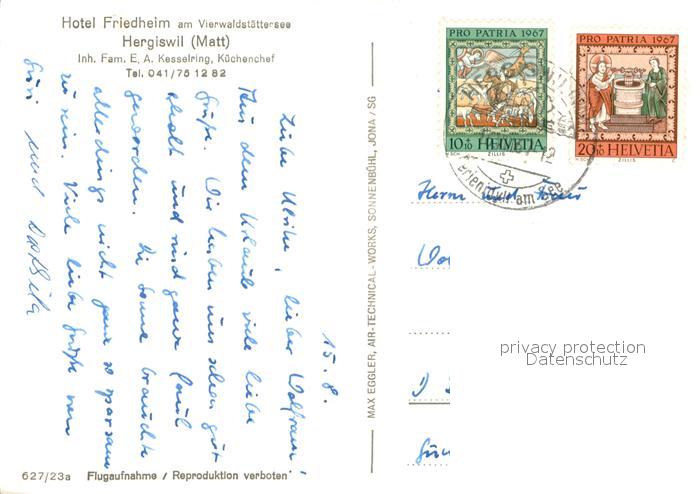 Hotel Friedheim am Vierwaldstättersee
Hergiswil (Matt)
Inh. Fam. E. A. Kesselring, Küchenchef
Tel. 041/75 12 82
15. 8.
Liebe Ulrike, lieber Wolfram!
Aus dem Urlaub viele liebe
Grüße. Wir haben uns schon gut
erholt und sind ganz faul
geworden. Die Sonne brauchte
allerdings nicht ganz so sparsam
zu sein. Viele liebe Grüße von
und
627/23a Flugaufnahme / Reproduktion verboten
MAX EGGLER, AIR-TECHNICAL-WORKS, SONNENBÜHL, JONA / SG
PRO PATRIA 1967
10+10 HELVETIA
ZILLIS
PRO PATRIA 1967
20+10 HELVETIA
ZILLIS
HERGISWIL
Ferienidyll am See
Herrn und
privacy protection
Datenschutz